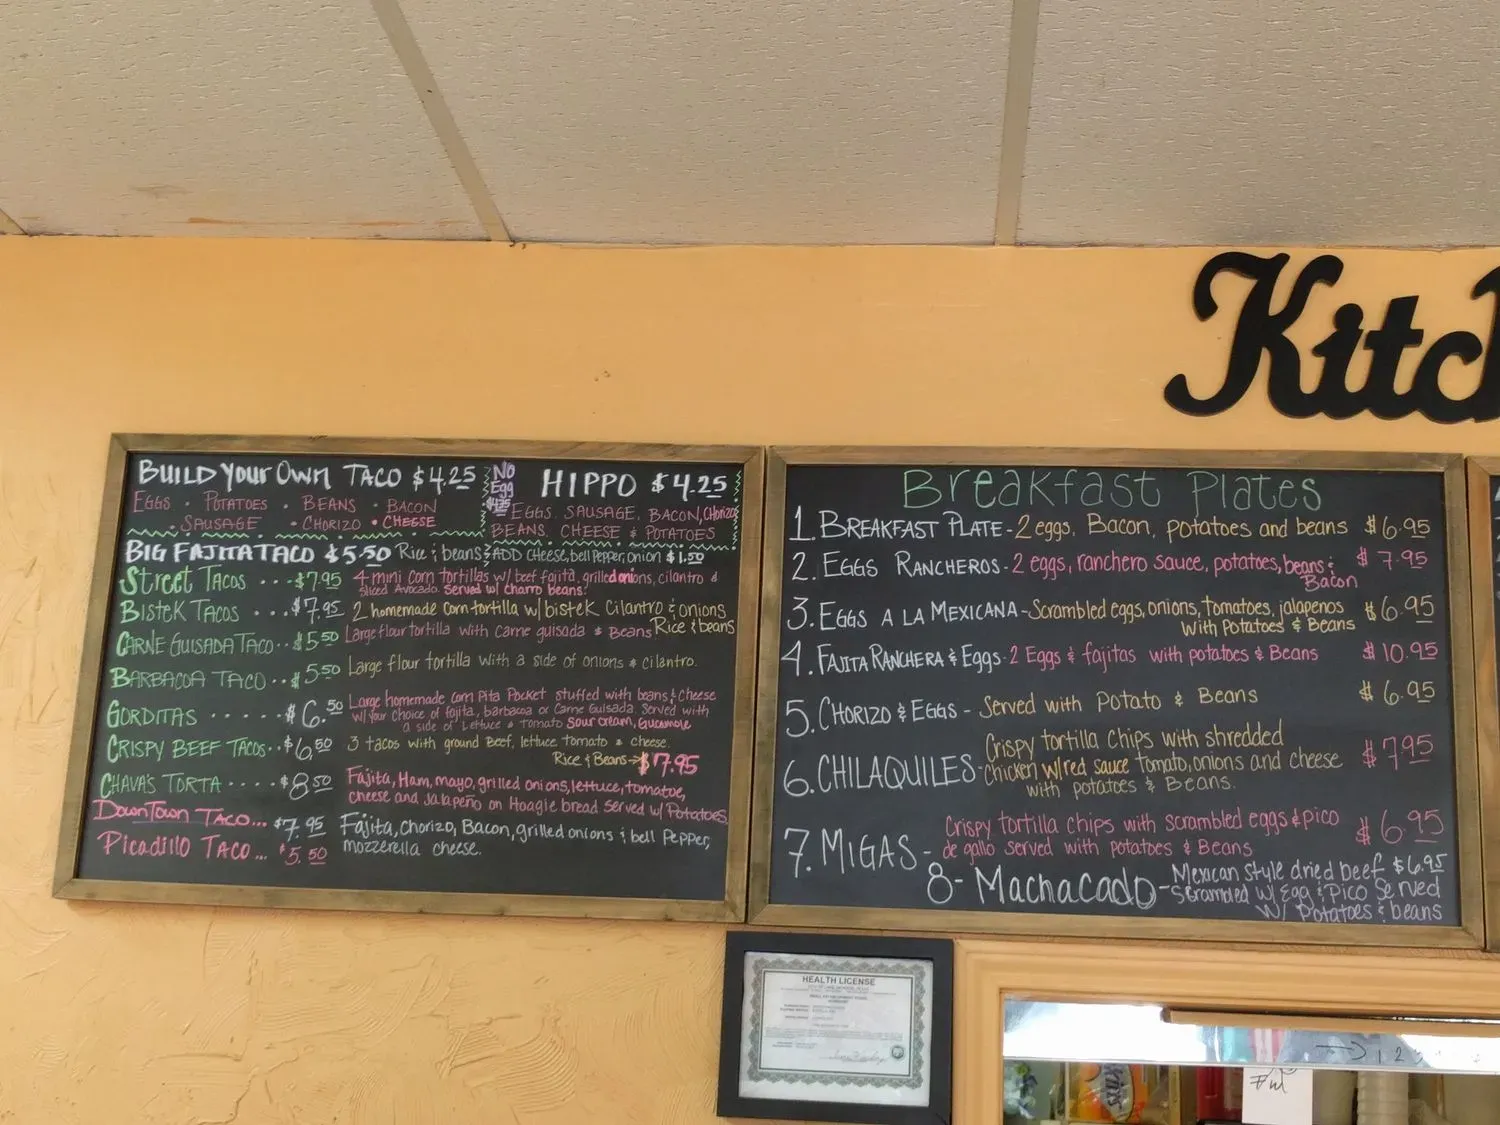 Kitc
BUILD YOUR OWN TACO $4.25
EGGS · POTATOES · BEANS · BACON
· SAUSAGE · CHORIZO • CHEESE
NO
Egg
$4.25
HIPPO $4.25
EGGS, SAUSAGE, BACON, Chorizo
BEANS, CHEESE & POTATOES
BIG FAJITA TACO $5.50 Rice & beans ADD Cheese, bell Pepper, onion $1.50
STREET TACOS ... $7.95 4 mini corn tortillas w/ beef fajita, grilled onions, cilantro &
sliced Avocado. Served w/ charro beans.
BISTEK TACOS ... $7.95 2 homemade corn tortilla w/ bistek cilantro & onions
Rice & beans
CARNE GUISADA TACO .. $5.50 Large flour tortilla with Carne guisada & Beans
BARBACOA TACO .. $5.50 Large flour tortilla with a side of onions & cilantro.
GORDITAS ..... $6.50 Large homemade corn Pita Pocket stuffed with beans & cheese
w/ your choice of fajita, barbacoa or Carne Guisada. Served with
a side of Lettuce & Tomato Sour cream, Guacamole
CRISPY BEEF TACOS .. $6.50 3 tacos with ground Beef, lettuce, tomato & cheese.
Rice & Beans → $7.95
CHAVA'S TORTA .... $8.50 Fajita, Ham, mayo, grilled onions, lettuce, tomatoe,
cheese and jalapeño on Hoagie bread served w/ Potatoes
DOWNTOWN TACO... $7.95 Fajita, Chorizo, Bacon, grilled onions & bell Pepper,
mozzerella cheese.
Picadillo TACO ... $5.50
Breakfast Plates
1. BREAKFAST PLATE - 2 eggs, Bacon, potatoes and beans $6.95
2. EGGS RANCHEROS - 2 eggs, ranchero sauce, potatoes, beans & $7.95
Bacon
3. EGGS A LA MEXICANA - Scrambled eggs, onions, tomatoes, jalapenos $6.95
With Potatoes & Beans
4. FAJITA RANCHERA & Eggs - 2 Eggs & fajitas with potatoes & Beans $10.95
5. CHORIZO & EGGS - Served with Potato & Beans $6.95
6. CHILAQUILES - Crispy tortilla chips with shredded
chicken w/ red sauce tomato, onions and cheese $7.95
with potatoes & Beans.
7. MIGAS - Crispy tortilla chips with scrambled eggs & pico $6.95
de gallo served with potatoes & Beans
8- Machacado - Mexican Style dried beef $6.95
Scrambled w/ Egg & Pico Served
W/ Potatoes & beans
HEALTH LICENSE